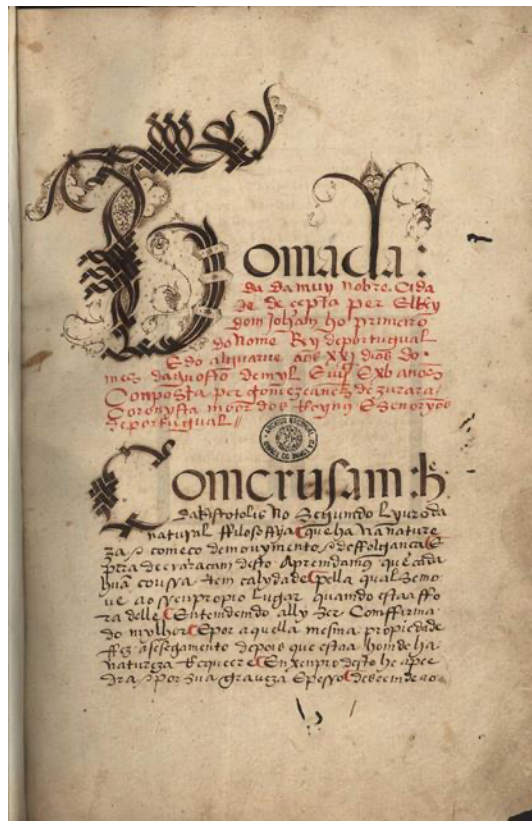 Tomada:
da da muy nobre Cida
de de cepta per ElRey
dom Johãm ho primeiro
do Nome Rey de portugual
E do alguarue aos XXI dias do
mes daguosto de myl E
Conposta per gomez eanes de zurara
Coronysta moor dos Reynos E Senoryos
de portugual
Comcrusam: he
daRistotolis No Segumdo Lyuro da
natural ffilosoffya que ha na nature
za comeco de mouymento E de ffolgança E
pera decraraçam desto Aprendamos que cada
huũa coussa tem calydade pella qual se mo
ve ao seu propio Lugar quamdo esta a ffo
ra delle Entemdemdo ally Ser Comffirma
do mylhor E por aquella mesma propiedade
ffaz asesegamento depois que estaa homde ha
natureza Requere E Enxenpro desto he a pe
dra por sua graveza E pesso desemde ao